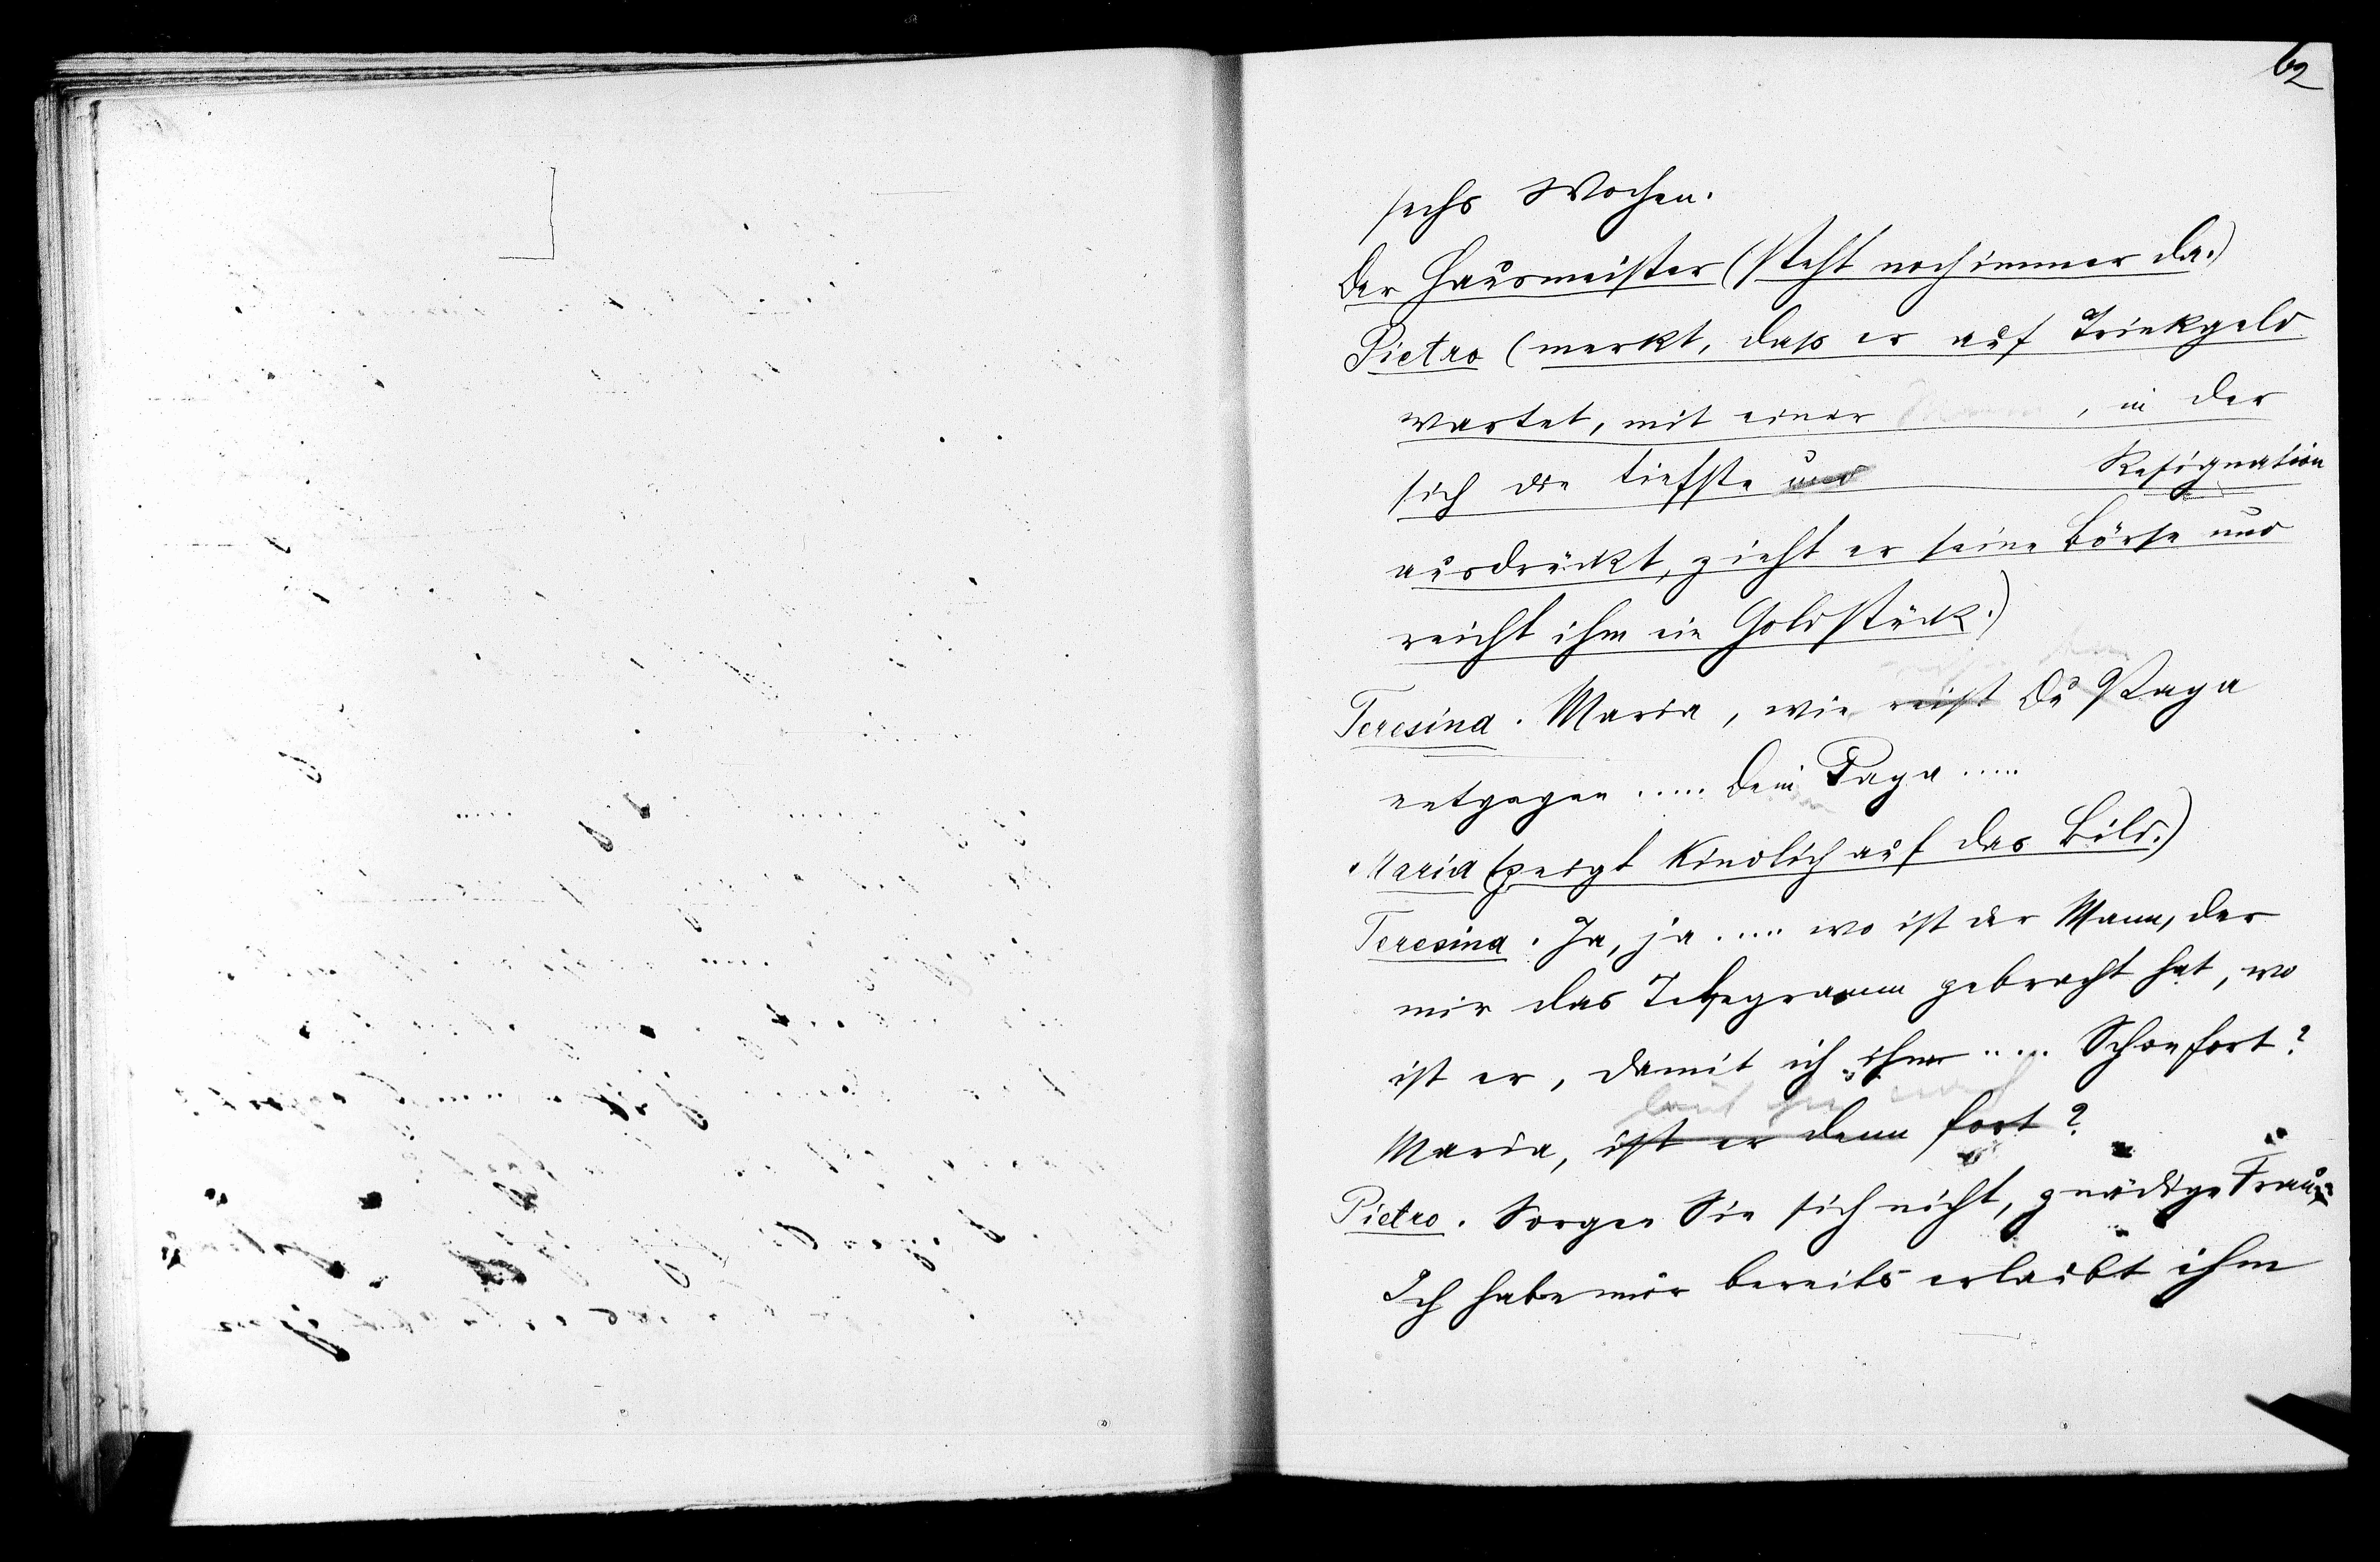 62
sechs Wochen.
Der Hausmeister (steht noch immer da.)
Pietro (merkt, daß er auf Trinkgeld
wartet, mit einer , in der
sich die tiefste und Resignation
ausdrückt, zieht er seine Börse und
reicht ihm ein Goldstück.)
Teresina. Maria, wie reist Du Papa
entgegen ..... Dein Papa .....
Maria (zeigt kindlich auf das Bild.)
Teresina. Ja, ja ..... wo ist der Mann, der
mir das Telegramm gebracht hat, wo
ist er, damit ich ihm ..... Schon fort?
Maria, ist er denn fort?
Pietro. Sorgen Sie sich nicht, gnädige Frau
Ich habe mir bereits erlaubt ihm